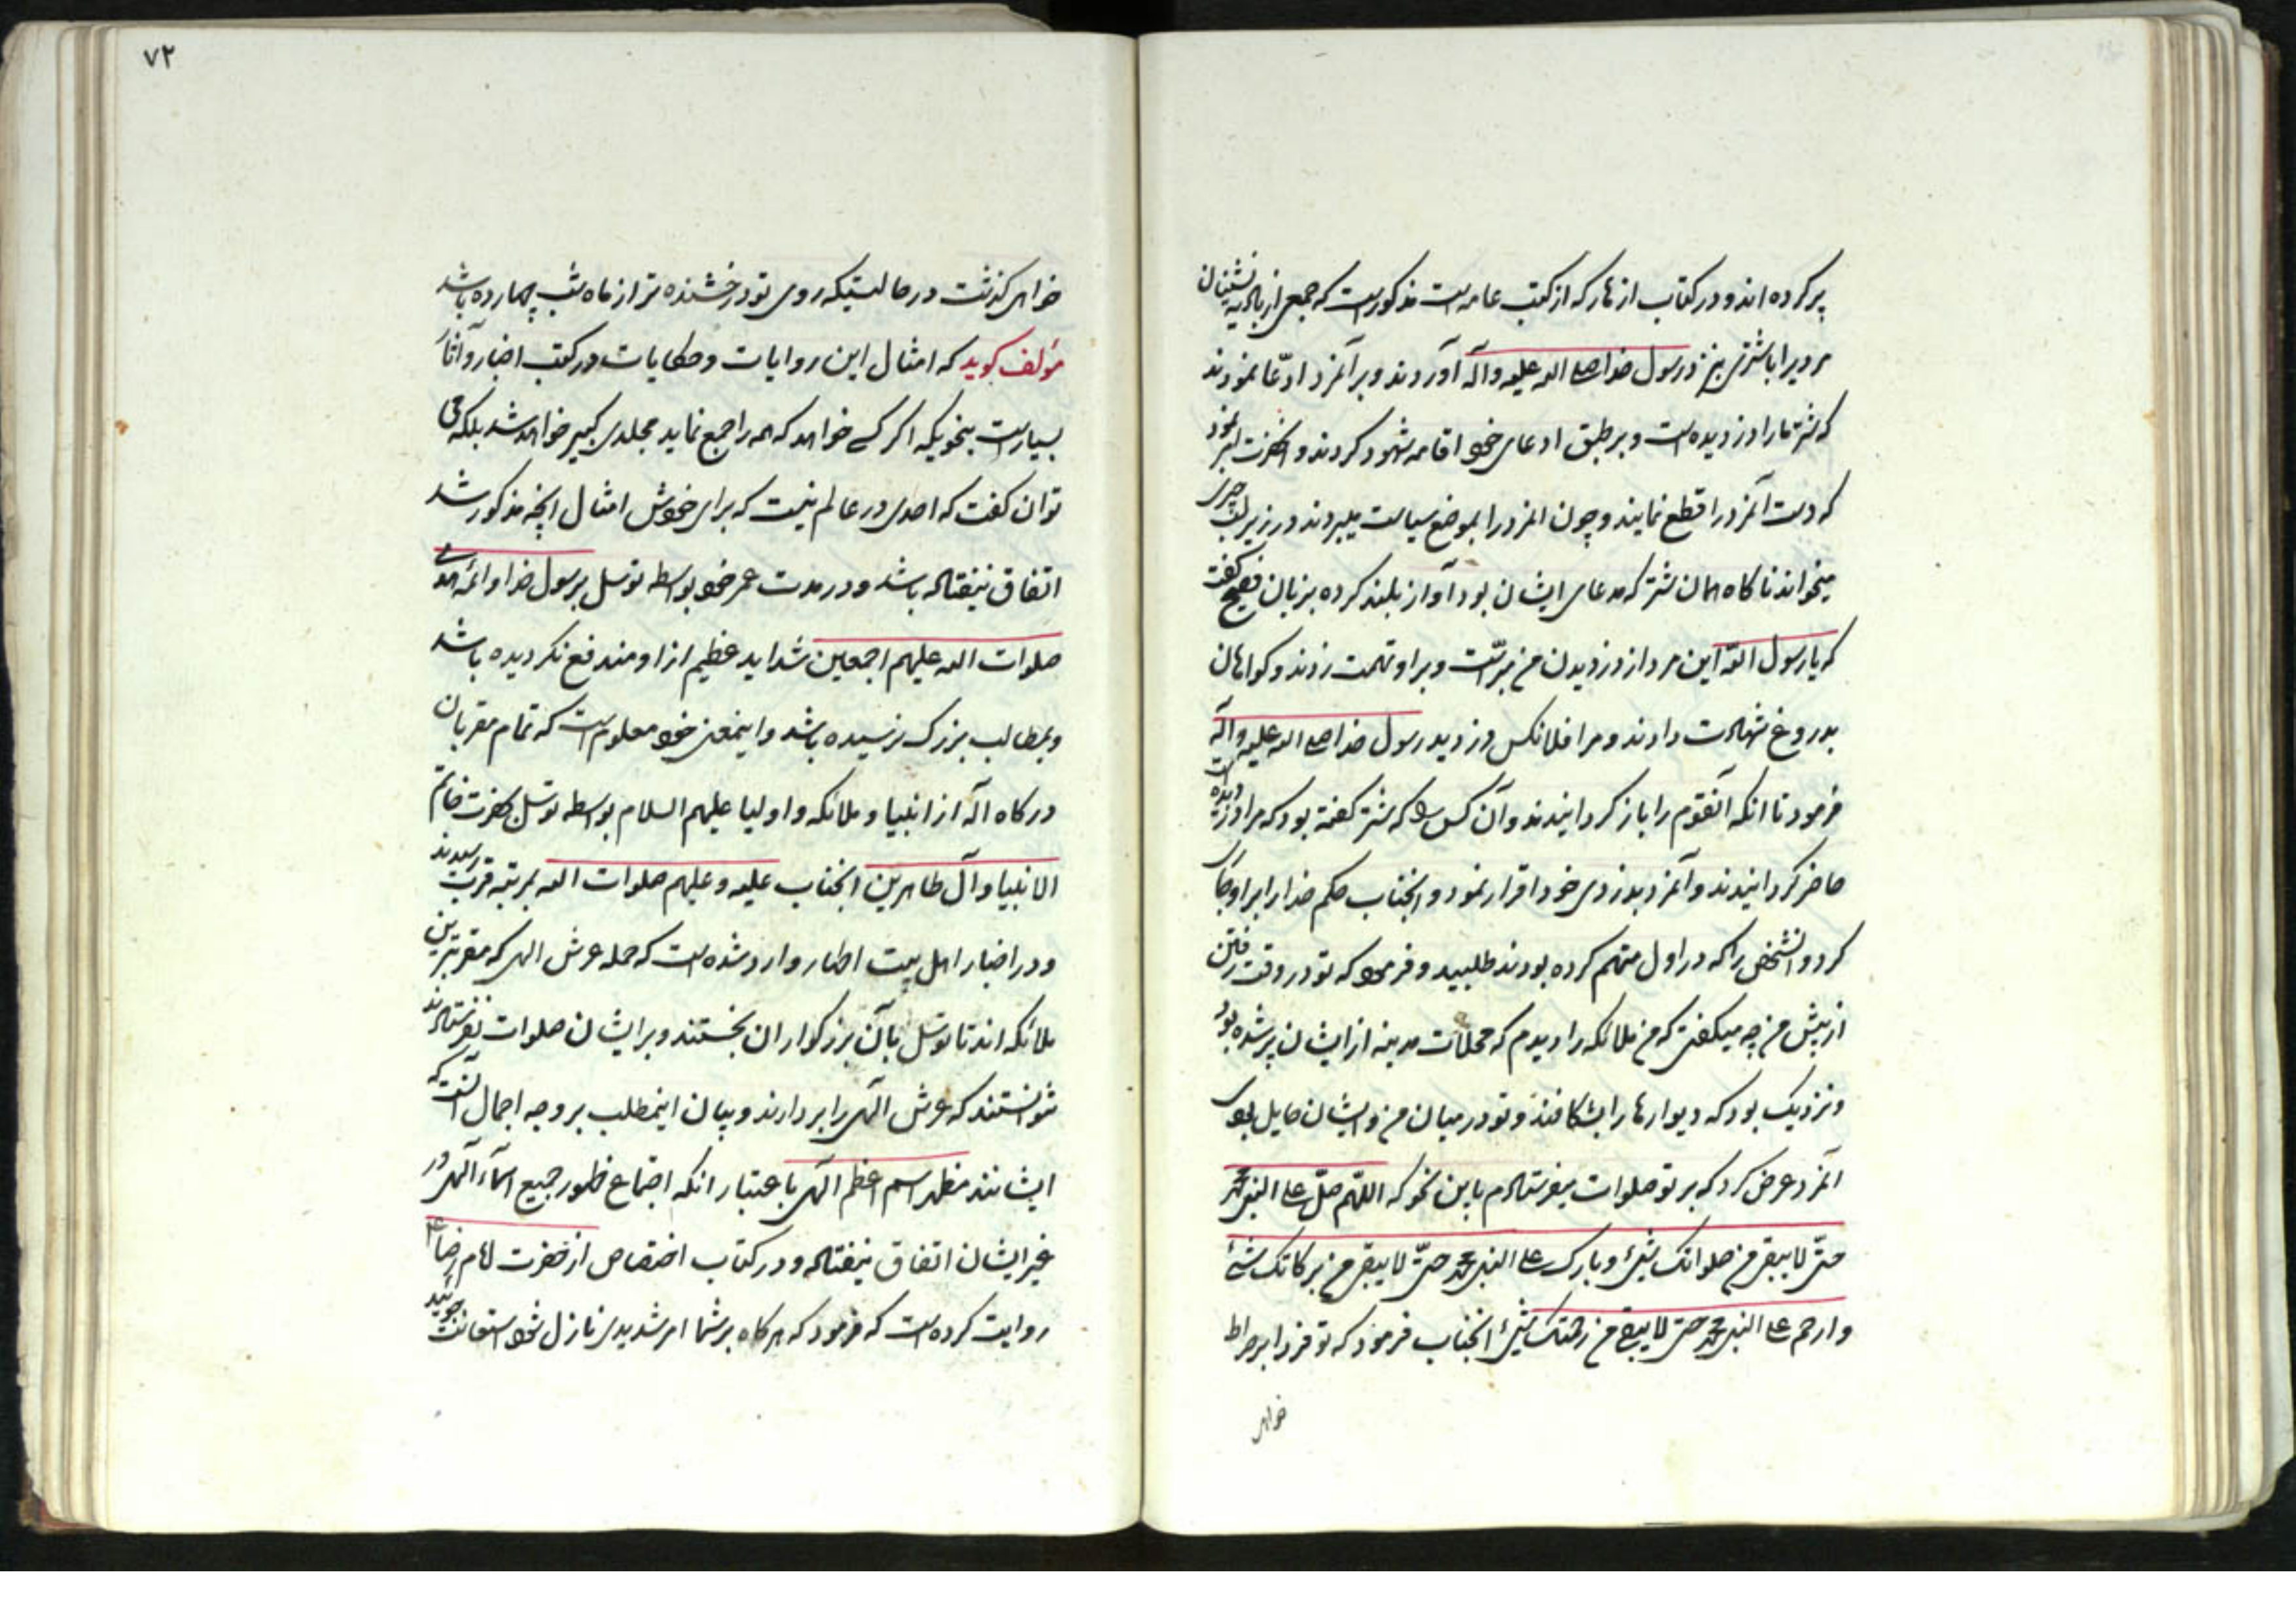 پر کرده اند و در کتاب ازهار که از کتب عامه است مذکور است که جمعی از بادیه نشینان
مردیرا با شتری بنزد رسول خدا صلی الله علیه وآله آوردند و بر آنمرد ادّعا نمودند
که شتر مارا دزدیده است و بر طبق ادعای خود اقامه شهود کردند و آنحضرت امر نمود
که دست آنمرد را قطع نمایند و چون انمرد را بموضع سیاست میبردند در زیر لب چیزی
میخواند ناکاه همان شتر که مدعای ایشان بود آواز بلند کرده بزبان فصیح کفت
که یا رسول الله این مرد از دزدیدن من بریّست و براو تهمت زدند و کواهان
بدروغ شهادت دادند و مرا فلانکس دزدید رسول خدا صلی الله علیه وآله
فرمود تا انکه آنقوم را باز کردانیدند و آن کس را که شتر کفته بود که مرا دزدیده است
حاضر کردانیدند و آنمرد بدزدی خود اقرار نمود و انجناب حکم خدا را بر او جاری
کرد و انشخص را که در اول متهم کرده بودند طلبید و فرمود که تو در وقت رفتن
از پیش من چه میکفتی که من ملائکه را دیدم که محلات مدینه از ایشان پر شده بود
و نزدیک بود که دیوارها را بشکافند و تو در میان من و ایشان حایل بودی
انمرد عرض کرد که بر تو صلوات میفرستادم باین نحو که اللهّم صلّ علی النبی محمد
حتّی لا یبقی من صلواتک شیئ و بارک علی النبی محمد حتّی لا یبقی من برکاتک شئ
وارحم علی النبی محمد حتی لا یبقی من رحمتک شیئ انجناب فرمود که تو فردا بر صراط
خواهی
۷۲
خواهی کذشت در حالتیکه روی تو درخشنده تر از ماه شب چهارده باشد
مؤلف کوید که امثال این روایات و حکایات در کتب اخبار و آثار
بسیار است بنحویکه اکر کسی خواهد که همه را جمع نماید مجلدی کبیر خواهد شد بلکه می
توان کفت که احدی در عالم نیست که برای خودش امثال انچه مذکور شد
اتفاق نیفتاده باشد و در مدت عمر خود بواسطه توسل برسول خدا و ائمه هدی
صلوات الله علیهم اجمعین شداید عظیم از او مندفع نکردیده باشد
و بمطالب بزرک نرسیده باشد و اینمعنی خود معلوم است که تمام مقربان
درکاه اله از انبیا و ملائکه و اولیا علیهم السلام بواسطه توسل بحضرت خاتم
الانبیا و آل طاهرین انجناب علیه و علیهم صلوات الله بمرتبه قرب رسیدند
و در اخبار اهل بیت اطهار وارد شده است که حمله عرش الهی که مقربترین
ملائکه اند تا توسل بآن بزرکواران نجستند و بر ایشان صلوات نفرستادند
نتوانستند که عرش الهی را بردارند و بیان اینمطلب بر وجه اجمال آنست که
ایشانند مظهر اسم اعظم الهی باعتبار انکه اجتماع ظهور جمیع اسمآء الهی در
غیر ایشان اتفاق نیفتاده و در کتاب اختصاص از حضرت امام رضا ع
روایت کرده است که فرمود که هرکاه بر شما امر شدیدی نازل شود استعانت جوئید